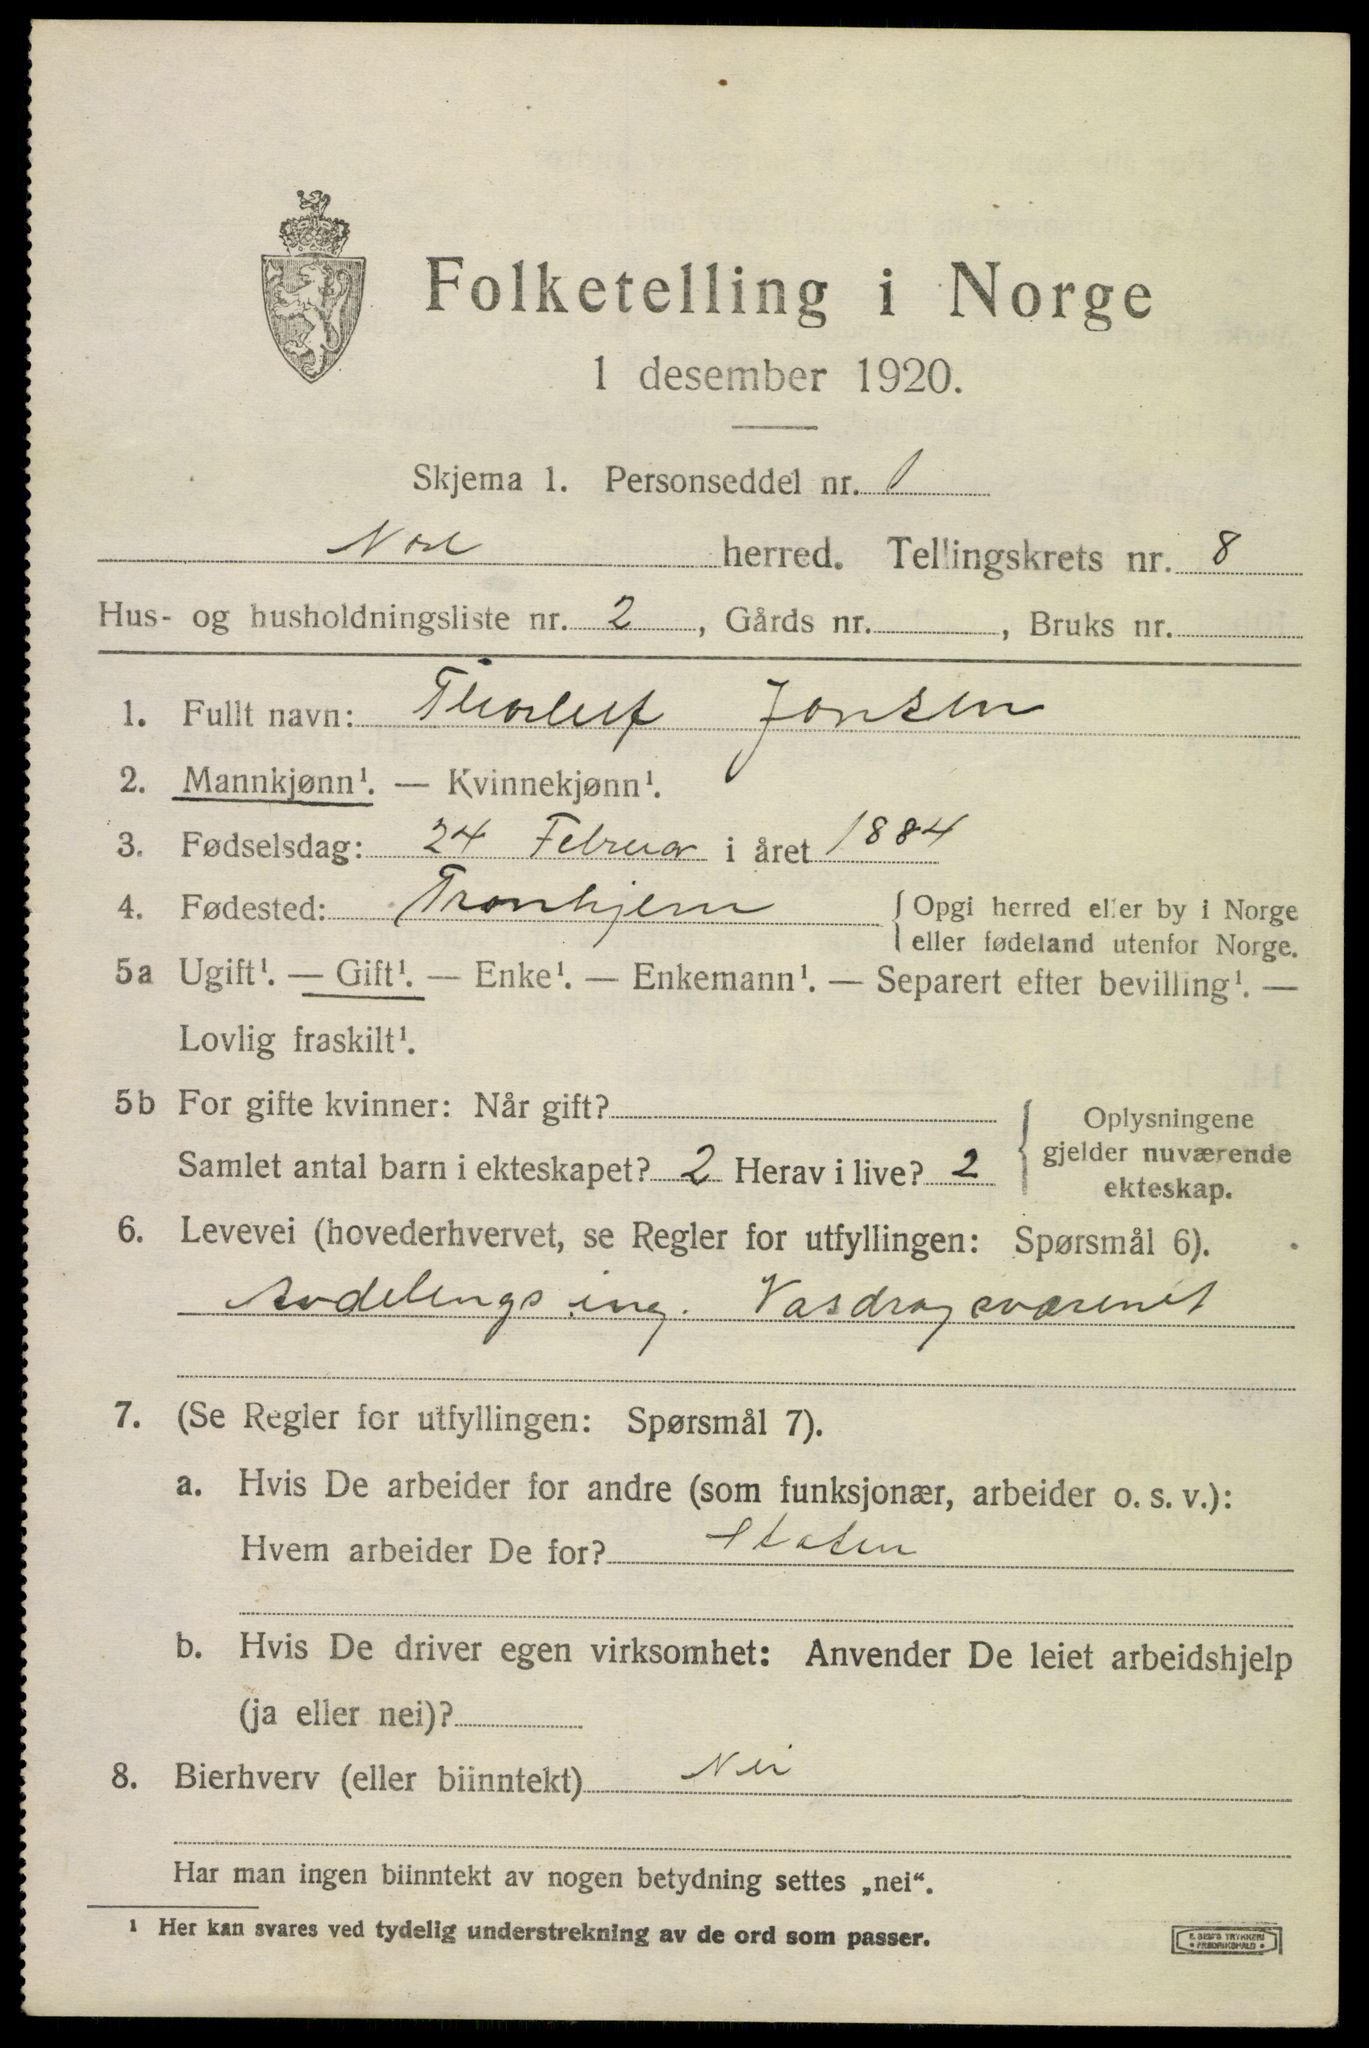 Folketelling i Norge
1 desember 1920.
Skjema 1. Personseddel nr. 1
Nore herred. Tellingskrets nr. 8
Hus- og husholdningsliste nr. 2, Gårds nr. , Bruks nr.
1. Fullt navn: Thorleif Jonsen
2. Mannkjønn¹. — Kvinnekjønn¹.
3. Fødselsdag: 24 Februar i året 1884
4. Fødested: Tronhjem { Opgi herred eller by i Norge
eller fødeland utenfor Norge.
5a Ugift¹. — Gift¹. — Enke¹. — Enkemann¹. — Separert efter bevilling¹. —
Lovlig fraskilt¹.
5b For gifte kvinner: Når gift?
Samlet antal barn i ekteskapet? 2 Herav i live? 2
{ Oplysningene
gjelder nuværende
ekteskap.
6. Levevei (hovederhvervet, se Regler for utfyllingen: Spørsmål 6).
Avdelings ing. Vasdragsvæsenet
7. (Se Regler for utfyllingen: Spørsmål 7).
a. Hvis De arbeider for andre (som funksjonær, arbeider o. s. v.):
Hvem arbeider De for? Staten
b. Hvis De driver egen virksomhet: Anvender De leiet arbeidshjelp
(ja eller nei)?
8. Bierhverv (eller biinntekt) Nei
Har man ingen biinntekt av nogen betydning settes „nei“.
¹ Her kan svares ved tydelig understrekning av de ord som passer.
E. SEM'S TRYKKERI
• FREDRIKSHALD •